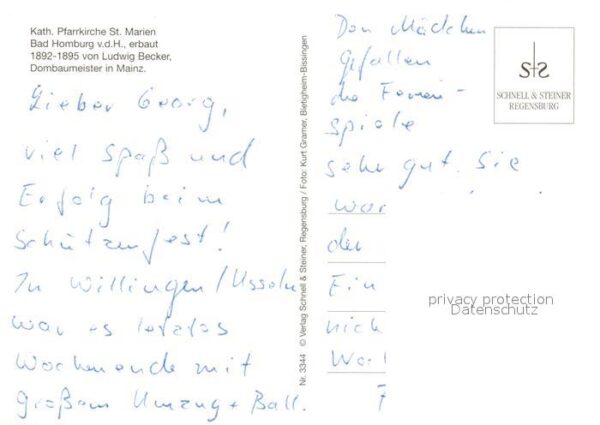 Kath. Pfarrkirche St. Marien
Bad Homburg v.d.H., erbaut
1892-1895 von Ludwig Becker,
Dombaumeister in Mainz.
Lieber Georg,
viel Spaß und
Erfolg beim
Schützenfest!
In Willingen/Usseln
war es letztes
Wochenende mit
großem Umzug + Ball.
Nr. 3344 © Verlag Schnell & Steiner, Regensburg / Foto: Kurt Gramer, Bietigheim-Bissingen
Den Mädchen
gefallen
die Ferien-
spiele
sehr gut. Sie
war
der
Ein
nich
SCHNELL & STEINER
REGENSBURG
privacy protection
Datenschutz